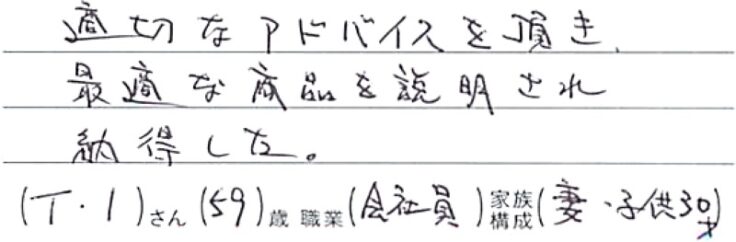 適切なアドバイスを頂き、
最適な商品を説明され
納得した。
(T・I)さん(59)歳 職業(会社員)家族構成(妻・子供30才)